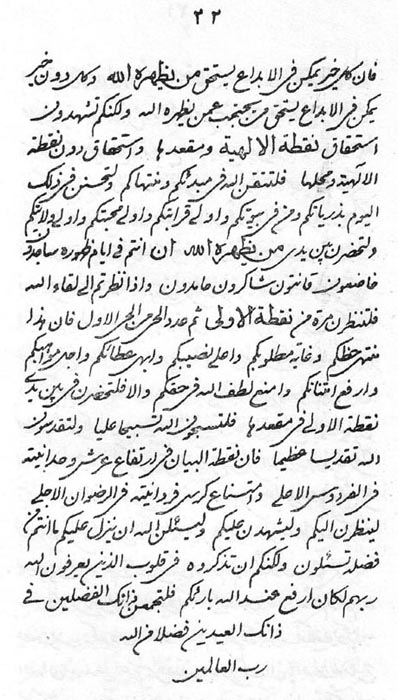 ٢٢
فان كل خير يمكن في الابداع يستحق من يظهره الله وكل دون خير
يمكن في الابداع يستحق من يحتجب عمن يظهره الله ولكنكم تشهدون
استحقاق نقطة الالهية ومقعدها واستحقاق دون نقطة
الالهية ومحلها فلتتقن الله في مبدئكم ومنتهاكم ولتحسنن في ذلك
اليوم بذرياتكم ومن في بيوتكم واولي قرابتكم واولي محبتكم واولي ولائكم
ولتحضرن بين يدي من يظهره الله ان انتم في ايام ظهوره ساجدون
خاضعون قانتون شاكرون حامدون واذا نظرتم الى لقاء الله
فلتنظرن مرة من نقطة الاولى ثم عدد الحي من الحي الاول فان هذا
منتهى حظكم وغاية مطلوبكم واعلى نصيبكم وابهى عطائكم واجل مواهبكم
وارفع امتنانكم وامنع لطف الله في حقكم والا فلتحضرن في بين يدي
نقطة الاولى في مقعدها فلتسبحن الله تسبيحا عليا ولتقدسون
الله تقديسا عظيما فان نقطة البيان في ارتفاع عرش وحدانيته
في الفردوس الاعلى وامتناع كرسي فردانيته في الرضوان الاجلى
لينظرن اليكم وليشهدن عليكم وليسئلن الله ان ينزل عليكم ما انتم من
فضله تسئلون ولكنكم ان تذكروه في قلوب الذينهم يعرفون الله
ربهم لكان ارفع عند الله بارئكم فلتجمعن ذانك الفضلين في
ذانك العيدين فضلا من الله
رب العالمين